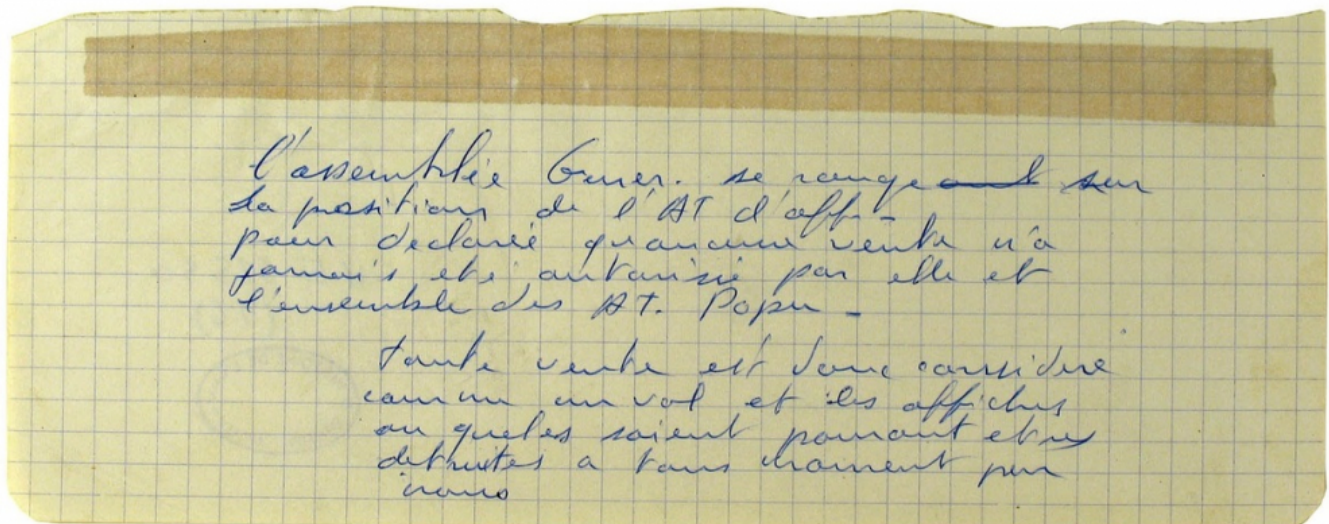 l'assemblée Gener. se range sur
la position de l'AT d'affi-
pour declaré qu'aucune vente n'a
jamais eté autorisié par elle et
l'ensemble des AT. Popu -
toute vente est donc consideré
comme un vol et les affiches
ou queles soient pourront etres
detruites a tous moment par
nous